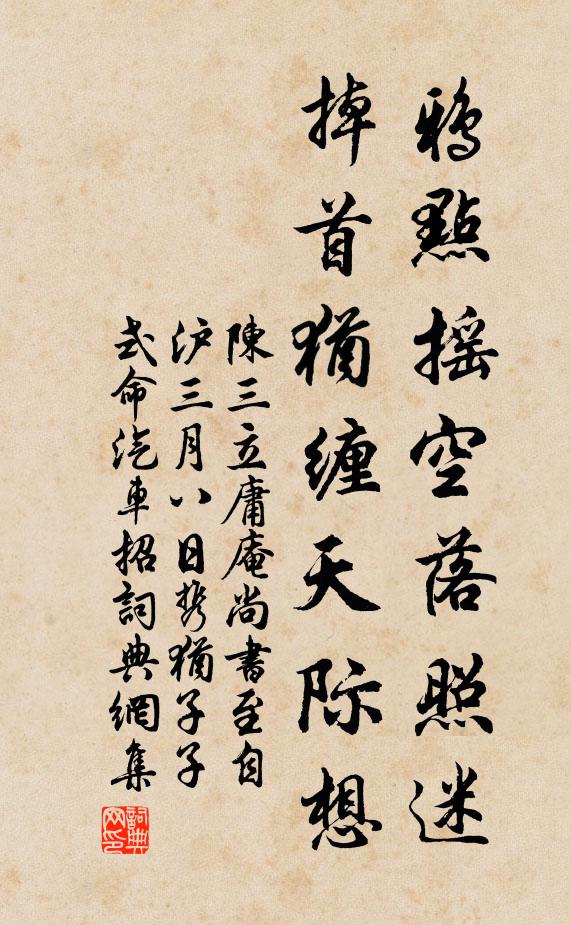 鴉點摇空落照迷
掉首猶纏天际想
陳三立庸庵尚書至自
沪三月八日携猶子子
式命汽車招詞典網集
詞典网印